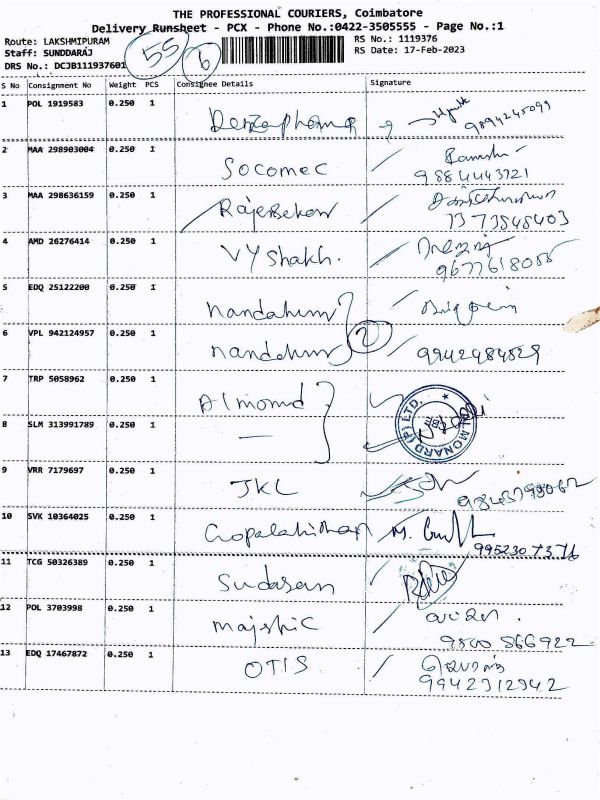 THE PROFESSIONAL COURIERS, Coimbatore
Delivery Runsheet - PCX - Phone No.:0422-3505555 - Page No.:1
Route: LAKSHMIPURAM
Staff: SUNDDARAJ
DRS No.: DCJB111937601
55
6
RS No.: 1119376
RS Date: 17-Feb-2023
S No Consignment No Weight PCS Consignee Details Signature
1 POL 1919583 0.250 1 9894245099
2 MAA 298903004 0.250 1 Socomec 9884443721
3 MAA 298636159 0.250 1 Rajesekar 7373545403
4 AMD 26276414 0.250 1 Vyshakh. 9677618055
5 EDQ 25122200 0.250 1 nandahum
6 VPL 942124957 0.250 1 nandahum 2 9942984829
7 TRP 5058962 0.250 1 Almond
8 SLM 313991789 0.250 1 —
9 VRR 7179697 0.250 1 JKL
10 SVK 10364025 0.250 1 9952307376
11 TCG 50326389 0.250 1 Sudasan
12 POL 3703998 0.250 1 majestic 9800866922
13 EDQ 17467872 0.250 1 OTIS 9942312942